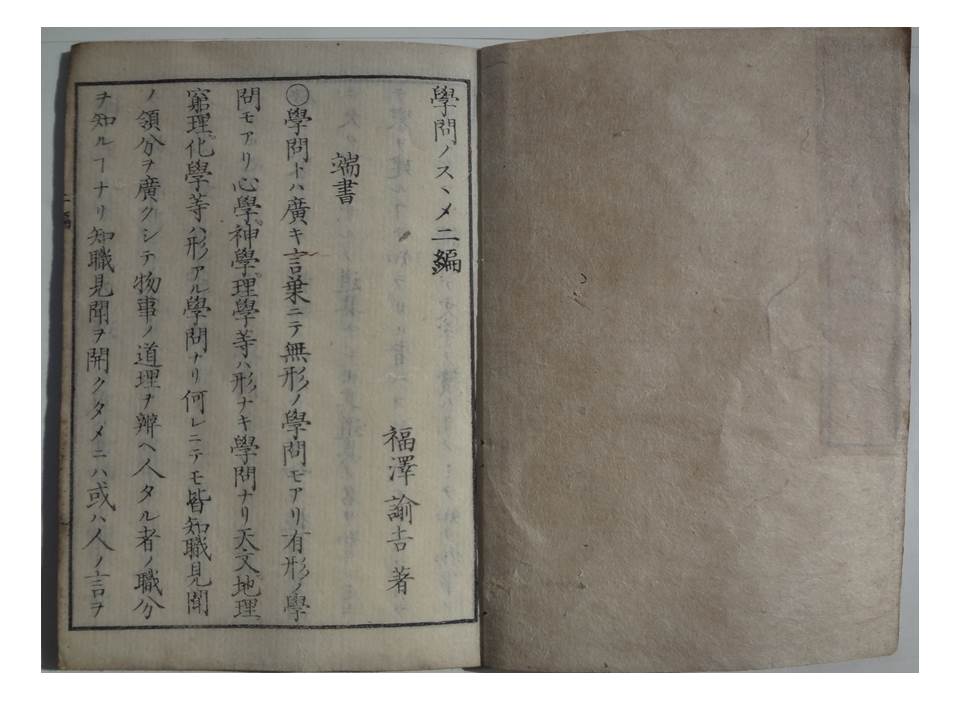 學問ノスヽメ二編
福澤諭吉著
端書
○學問トハ廣キ言葉ニテ無形ノ學問モアリ有形ノ學
問モアリ心學神學理學等ハ形ナキ學問ナリ天文地理
窮理化學等ハ形アル學問ナリ何レニテモ皆知職見聞
ノ領分ヲ廣クシテ物事ノ道理ヲ辨ヘ人タル者ノ職分
ヲ知ルヿナリ知職見聞ヲ開クタメニハ或ハ人ノ言ヲ
二編